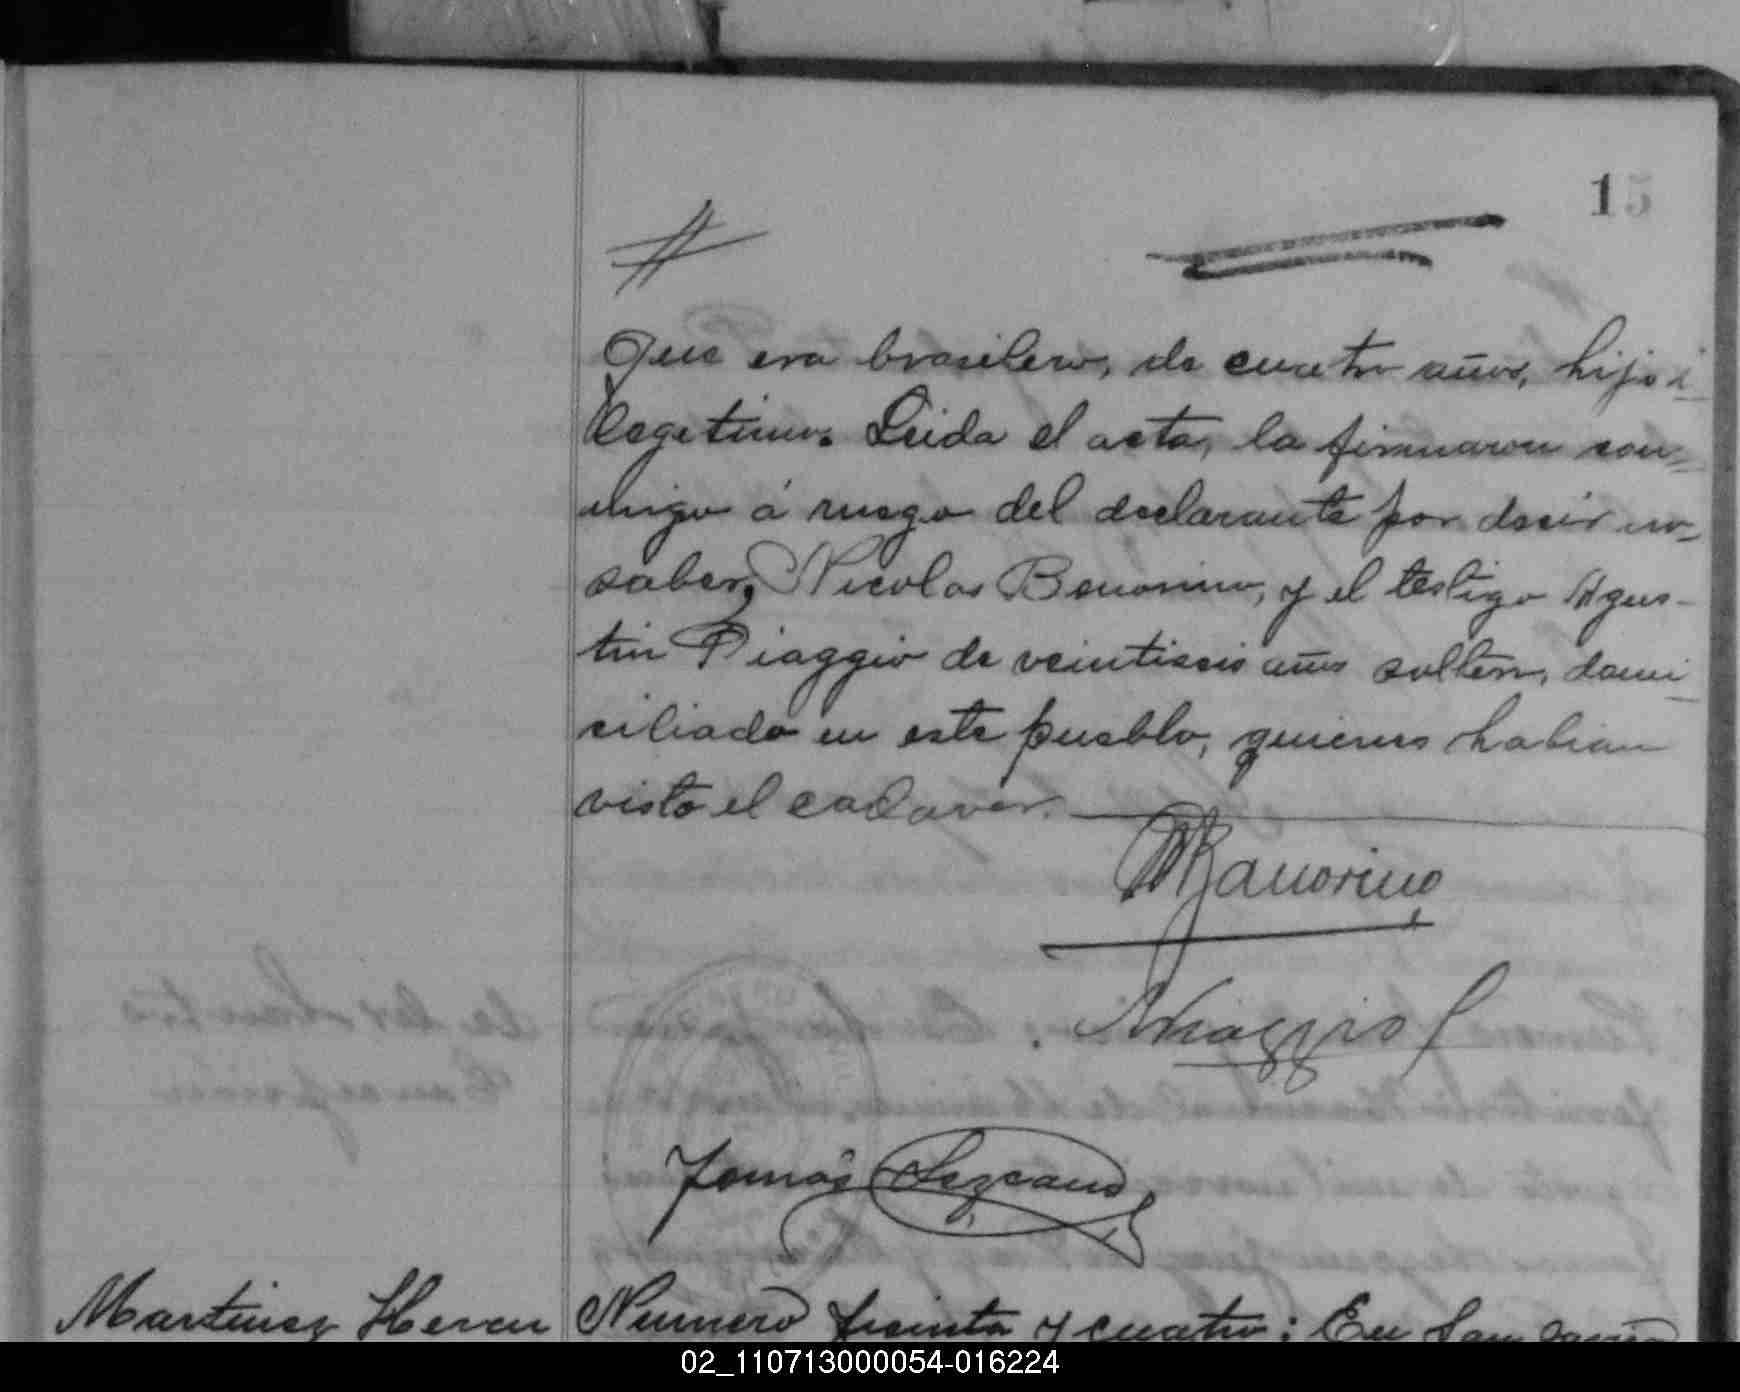 15
Que era brasilero, de cuatro años, hijo i-
legetimo. Leida el acta, la firmaron con-
migo á ruego del declarante por decir no-
saber, Nicolas Benorino, y el testigo Agus-
tin Piaggio de veintiseis años soltero, domi-
ciliado en este pueblo, quienes habian
visto el cadaver.
NBanorino
APiaggio
Tomás Lezcano
Martinez Numero treinta y cuatro: En San
02_110713000054-016224